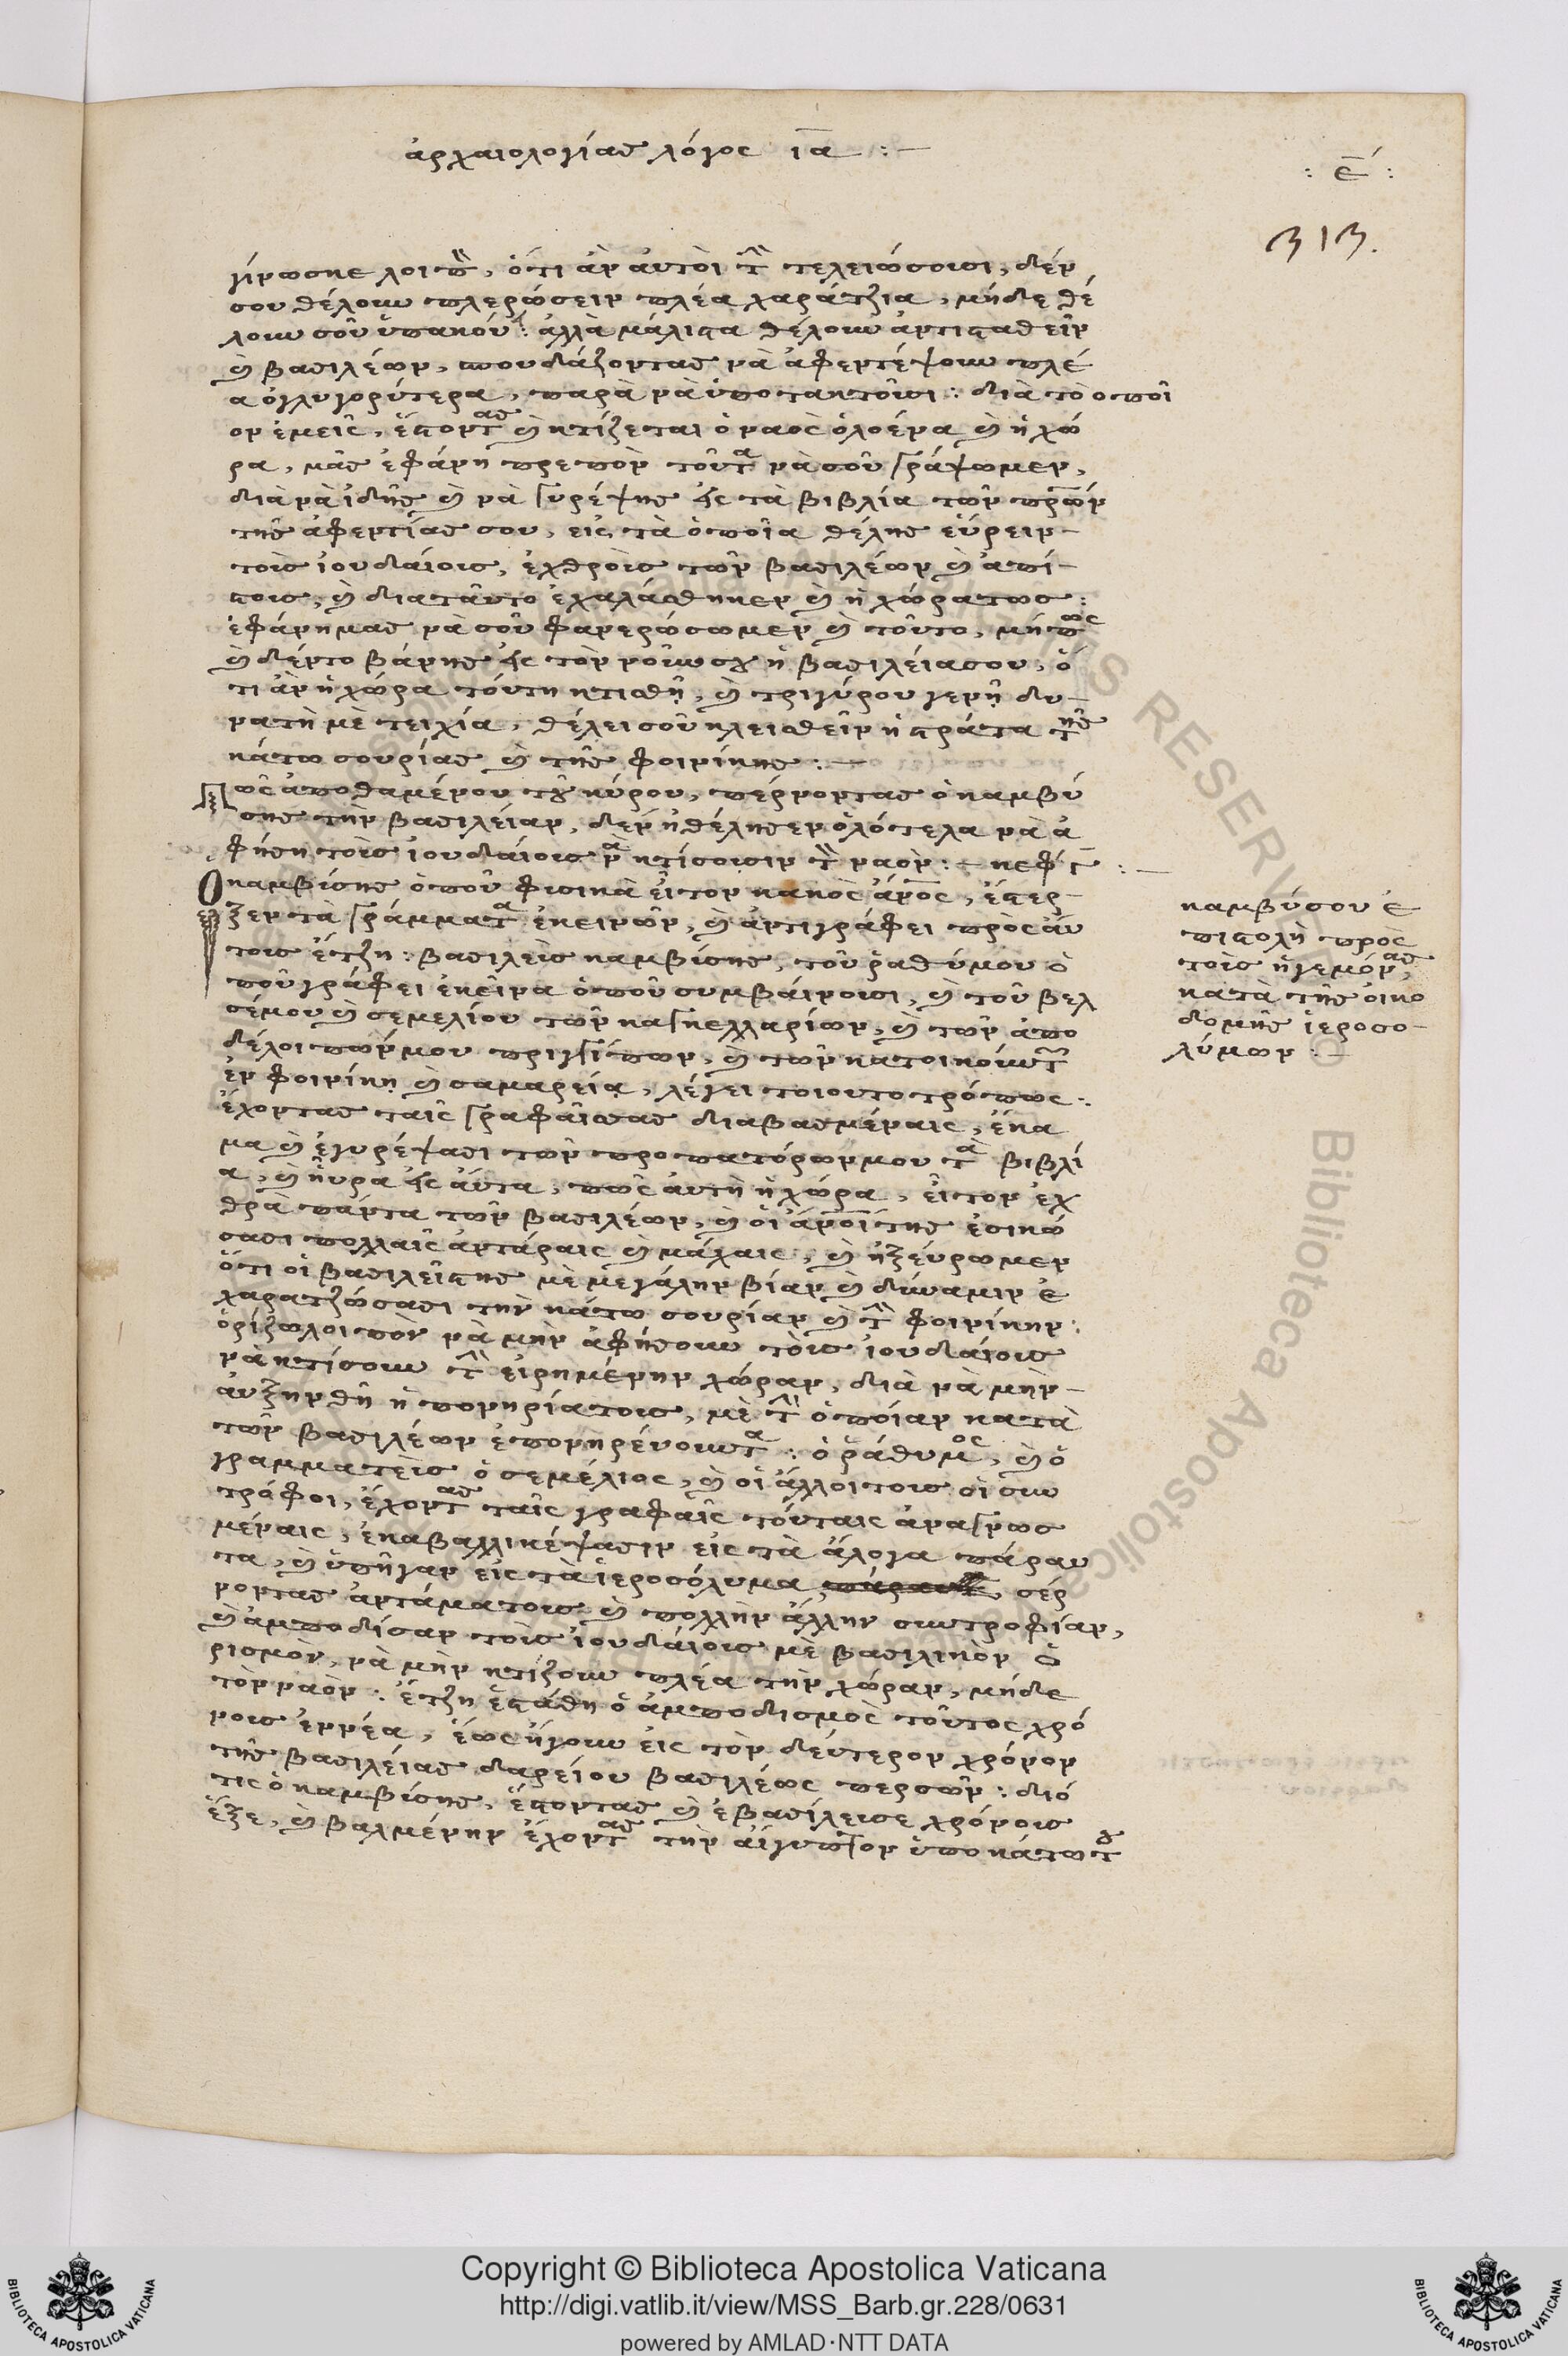 ἀρχαιολογίας λόγος ια :—
: ε΄ :
313.
γίνωσκε λοιπὸν, ὅτι ἂν αὐτοὶ τὴν τελειώσουσι, δέν
σου θέλουν πλερώσειν πλέα χαράτζια, μήδε θέ
λουν σοῦ ὑπακούει: ἀλλὰ μάλιστα θέλουν ἀντισταθεῖν
καὶ βασιλέων, σπουδάζοντας νὰ ἀφεντέψουν πλέ
α ὀγλυγορύτερα, παρὰ νὰ ὑποτακτοῦσι: διὰ τὸ ὁποῖ
ον ἐμεῖς, ἔστοντας καὶ κτίζεται ὁ ναὸς ὁλοένα καὶ ἡ χώ
ρα, μᾶς ἐφάνη πρεπὸν τοῦτα νὰ σοῦ γράψωμεν,
διὰ νὰ ἰδῆς καὶ νὰ γυρέψης εἰς τὰ βιβλία τῶν πρώην
τῆς ἀφεντίας σου, εἰς τὰ ὁποῖα θέλης εὕρειν
τοὺς ἰουδαίους, ἐχθροὺς τῶν βασιλέων καὶ ἀπί
στους, καὶ διαταῦτο ἐχαλάσθηκεν καὶ ἡ χώρατως:
ἐφάνημας νὰ σοῦ φανερώσωμεν καὶ τοῦτο, μήπως
καὶ δέντο βάνης εἰς τὸν νοῦν σου ἡ βασιλείασου, ὅ
τι ἂν ἡ χώρα τούτη κτισθῆ, καὶ τριγύρου γενῆ δυ
νατὴ μὲ τειχία, θέλει σοῦ κλεισθεῖν ἡ στράτα τῆς
κάτω συρίας καὶ τῆς φοινίκης :—
Πῶς ἀποθαμένου τοῦ κύρου, πέρνοντας ὁ καμβύ
σης τὴν βασιλείαν, δέν ἠθέλησεν ὁλότελα νὰ ἀ
φήση τοὺς ἰουδαίους νὰ κτίσουσιν τὸν ναόν: κεφ Γ :—
Ὁ καμβύσης ὁποῦ φυσικὰ εἶτον κακὸς ἄνθρωπος, ἔστερ
ξεν τὰ γράμματα ἐκεινῶν, καὶ ἀντιγράφει πρὸς αὐ
τοὺς ἔτζη: βασιλεὺς καμβύσης, τοῦ ῥαθύμου ὁ
ποῦ γράφει ἐκεῖνα ὁποῦ συμβαίνουσι, καὶ τοῦ βελ
σέμου καὶ σεμελίου τῶν καγκελλαρίων, καὶ τῶν ἀπο
δέλοιπῶνμου πριγκίπων, καὶ τῶν κατοικούντων
ἐν φοινίκη καὶ σαμαρεία, λέγει τοιουτοτρόπως:
ἔχοντας ταῖς γραφαῖςσας διαβασμέναις, ἔκα
μα καὶ ἐγυρέψασι τῶν προπατόρωνμου τὰ βιβλί
α, καὶ ηὗρα εἰς αὐτα, πῶς αὐτὴ ἡ χώρα, εἶτον ἐχ
θρὰ πάντα τῶν βασιλέων, καὶ οἱ ἄνθρωποί της ἐσικώ
σασι πολλαῖς ἀντάραις καὶ μάχαις, καὶ ἠξεύρωμεν
ὅτι οἱ βασιλεῖςτης μὲ μεγάλην βίαν καὶ δύναμιν ἐ
χαρατζώσασι τὴν κάτω συρίαν καὶ τὴν φοινίκην:
ὁρίζωλοιπὸν νὰ μὴν ἀφήσουν τοὺς ἰουδαίους
νὰ κτίσουν τὴν εἰρημένην χώραν, διὰ νὰ μὴν
αὐξηνθῆ ἡ πονηρίατους, μὲ τὴν ὁποίαν κατὰ
τῶν βασιλέων ἐπονηρεύουντα: ὁ ῥάθυμος, καὶ ὁ
γραμματεὺς ὁ σεμέλιος, καὶ οἱ ἄλλοιτους οἱ συν
τρόφοι, ἔχοντας ταῖς γραφαῖς τούταις ἀναγνωσ
μέναις, ἐκαβαλλικέψασιν εἰς τὰ ἄλογα πάραυ
τα, καὶ ὑπῆγαν εἰς τὰ ἱεροσόλυμα, σέρ
νοντας ἀντάματους καὶ πολλὴν ἄλλην συντροφίαν,
καὶ ἀμποδίσαν τοὺς ἰουδαίους μὲ βασιλικὸν ὁ
ρισμὸν, νὰ μὴν κτίζουν πλέα τὴν χώραν, μήδε
τὸν ναόν: ἔτζη ἐστάθη ὁ ἀμποδισμὸς τοῦτος χρό
νους ἐννέα, ἕως ἤγουν εἰς τὸν δεύτερον χρόνον
τῆς βασιλείας δαρείου βασιλέως περσῶν: διό
τις ὁ καμβύσης, ἔστοντας καὶ ἐβασίλευσε χρόνους
ἕξε, καὶ βαλμένην ἔχοντας τὴν αἴγυπτον ὑποκάτωτου
καμβύσου ἐ
πιστολὴ πρὸς
τοὺς ἡγεμόνας,
κατὰ τῆς οἰκο
δομῆς ἱεροσο
λύμων :—
Copyright © Biblioteca Apostolica Vaticana
http://digi.vatlib.it/view/MSS_Barb.gr.228/0631
powered by AMLAD·NTT DATA
BIBLIOTECA APOSTOLICA VATICANA
BIBLIOTECA APOSTOLICA VATICANA